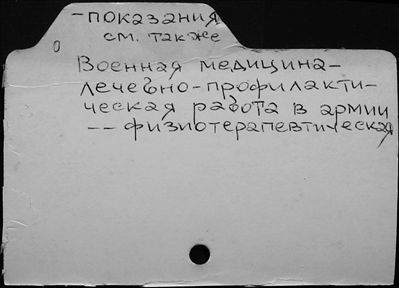 -показания
см. также
Военная медицина-
лечебно-профилакти-
ческая работа в армии
-- физиотерапевтическая